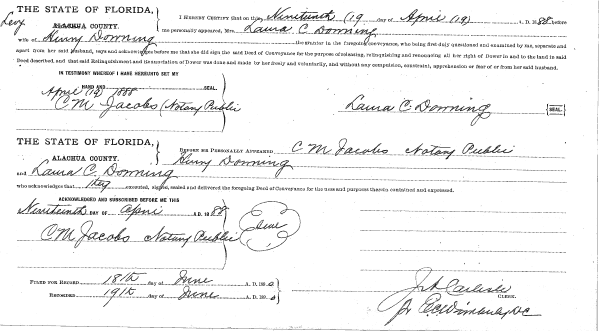 THE STATE OF FLORIDA,
Levy
ALACHUA COUNTY.
I HEREBY CERTIFY that on this Nineteenth (19 day of April (19) A. D. 1888, before
me personally appeared, Mrs. Laura C. Downing
wife of Henry Downing the grantor in the foregoing conveyance, who being first duly questioned and examined by me, separate and
apart from her said husband, says and acknowledges before me that she did sign the said Deed of Conveyance for the purpose of releasing, relinquishing and renouncing all her right of Dower in and to the land in said
Deed described, and that said Relinquishment and Renunciation of Dower was done and made by her freely and voluntarily, and without any compulsion, constraint, apprehension or fear of or from her said husband.
IN TESTIMONY WHEREOF I HAVE HEREUNTO SET MY
HAND AND SEAL.
April (19) 1888
C M Jacobs (Notary Public
Laura C. Downing SEAL.
THE STATE OF FLORIDA,
ALACHUA COUNTY.
BEFORE ME PERSONALLY APPEARED C M Jacobs Notary Public
Henry Downing
and Laura C. Downing
who acknowledges that they executed, signed, sealed and delivered the foregoing Deed of Conveyance for the uses and purposes therein contained and expressed.
ACKNOWLEDGED AND SUBSCRIBED BEFORE ME THIS
Nineteenth DAY OF April A.D. 1888
C M Jacobs Notary Public
FILED FOR RECORD 18th day of June A. D. 189
RECORDED 19th day of June A. D. 189
J A Carlisle
CLERK.
D C